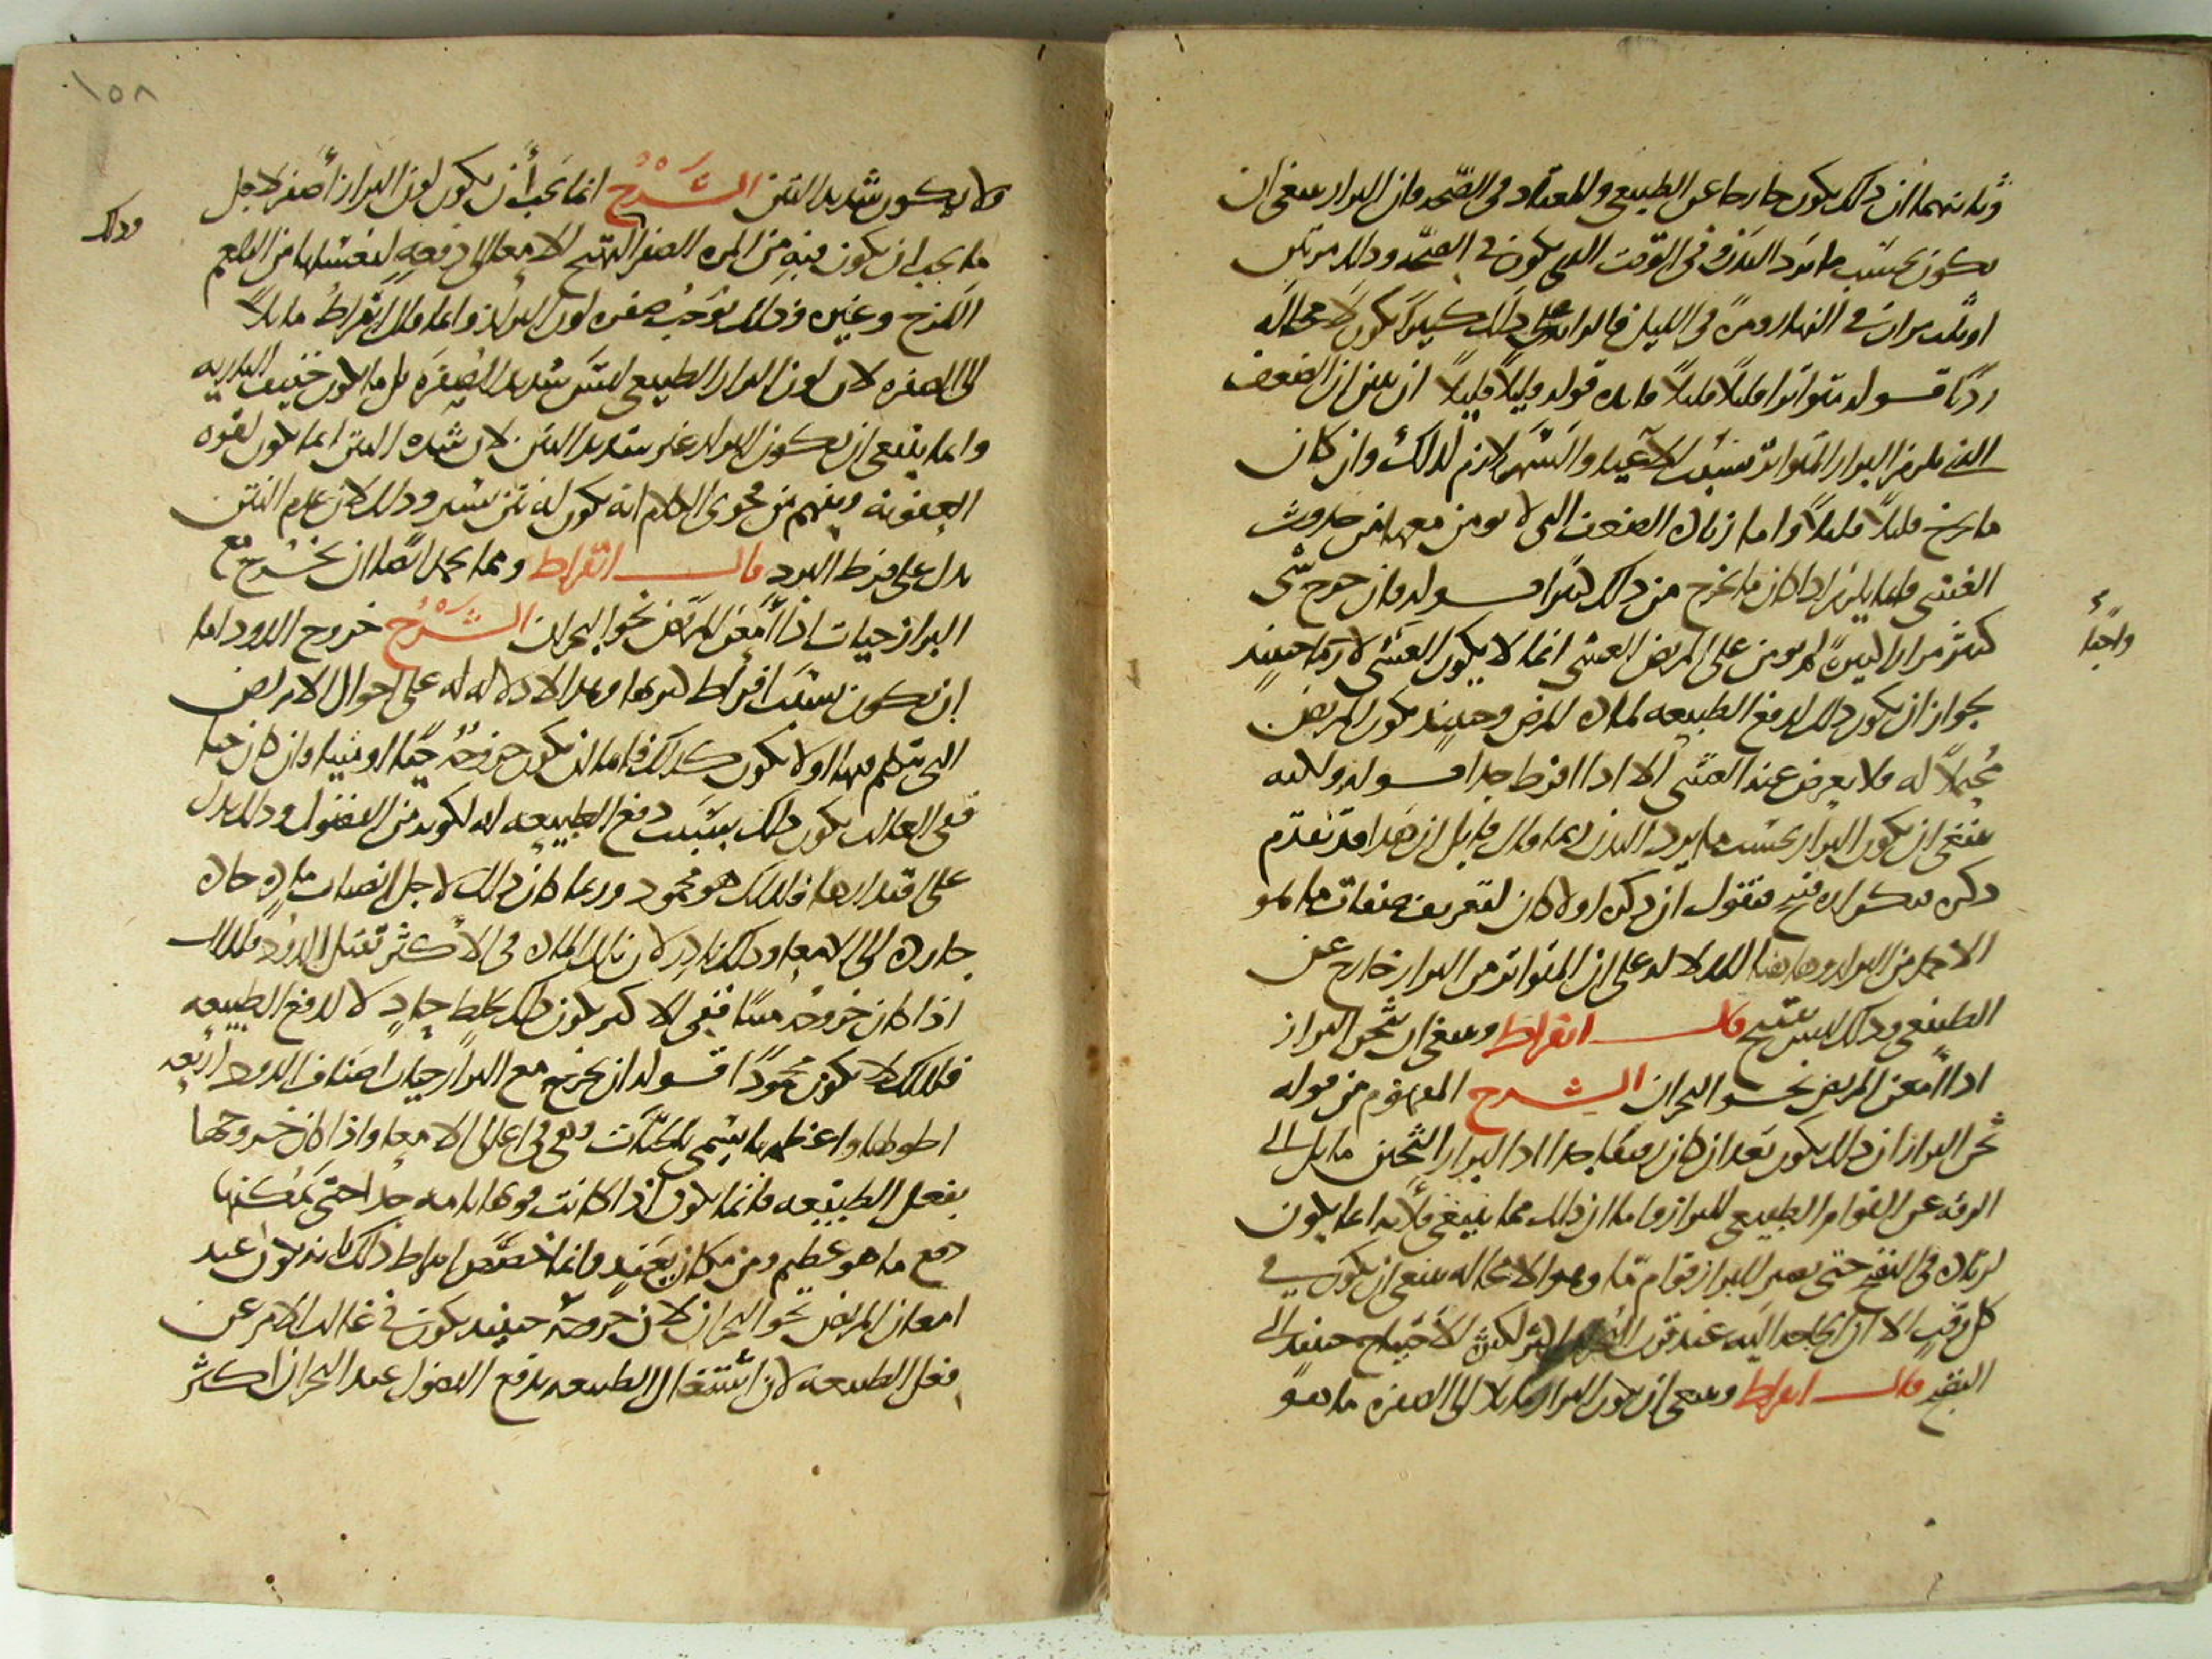 وثانيهما ان ذلك يكون خارجا عن الطبيعي والمعتاد في الصحه وان البراز ينبغي ان
يكون بحسب ما يرد البدن وفي الوقت الذي يكون في الصحه وذلك مرتين
او ثلث مرات في النهار ومرة في الليل فالزائد على ذلك كثيرا يكون لا محاله
رديا قوله متواترا قليلا قليلا فائده قوله قليلا قليلا ان يبين ان الضعف
الذي يلزم البراز المتواتر بسبب الاعياء والسهر لازم لذلك وان كان
ما يخرج قليلا قليلا واما زياده الضعف التي لا يومن معها من حدوث
الغشي فانما يلزم اذا كان ما يخرج من ذلك كثيرا قوله فان خرج شي
كثير مرارا كثيرة لم يومن على المريض الغشي انما لا يكون الغشي لازما حينئذ
بجواز ان يكون ذلك لدفع الطبيعه لماده المرض وحينئذ يكون المريض
محتملا له فلا يعرض عنه الغشي الا اذا افرط جدا قوله ولكنه
ينبغي ان يكون البراز بحسب ما يرد البدن ربما قال قايل ان هذا قد تقدم
ذكره فتكراره قبيح فنقول ان ذكره اولا كان لتعريف صفات ما هو
الاحمد من البراز وهاهنا للدلاله على ان المتواتر من البراز خارج عن
الطبيعي وذلك ليس بقبيح قال ابقراط وينبغي ان يثخن البراز
اذا امعن المريض نحو البحران الشرح المفهوم من قوله
ثخن البراز ان ذلك يكون بعد ان كان رقيقا جدا اذ البراز الثخين مايل الى
الرقه عن القوام الطبيعي للبراز واما ان ذلك مما ينبغي فلانه انما يكون
لزياده في النضج حتى يصير للبراز قوام ما وهو لا محاله ينبغي ان يكون في
كل وقت الا ان الحاجه اليه عند قرب البحران اكثر لكثرة الاحتياج حينئذ الى
النضج قال ابقراط وينبغي ان يكون البراز مايلا الى الصفره ما هو
واجبا
١٥٨
ولا يكون شديد النتن الشرح انما يجب ان يكون لون البراز اصفر لاجل
ما يجب ان يكون فيه من المره الصفرا لتهيج الامعا الى دفعه لغسلها من البلغم
اللزج وغيره وذلك يوجب صفره لون البراز وانما قال ابقراط مايلا
الى الصفره لان لون البراز الطبيعي ليس شديد الصفره بل ما يكون خفيف الناريه
وانما ينبغي ان يكون البراز غير شديد النتن لان شده النتن انما يكون لقوه
العفونه ويفهم من فحوى الكلام انه يكون له نتن يسير وذلك لان عدم النتن
يدل على فرط البرد قال ابقراط ومما يحمد ايضا ان يخرج مع
البراز حيات اذا امعن المرض نحو البحران الشرح خروج الدود اما
ان يكون بسبب افراط كثرتها وهذا لا دلاله له على احوال الامراض
التي يتكلم فيها او لا يكون كذلك فاما ان يكون خروجه حيا او ميتا وان كان حيا
ففي الغالب يكون ذلك بسبب دفع الطبيعه له لكونه من الفضول وذلك يدل
على اقتدارها فلذلك هو محمود وربما كان ذلك لاجل انصباب ماده حاده
حاره الى الامعا وذلك نادر لان تلك الماده في الاكثر تقتل الدود فلذلك
اذا كان خروجه ميتا ففي الاكثر يكون ذلك لخلط حاد لا لدفع الطبيعه
فلذلك لا يكون محمودا قوله ان يخرج مع البراز حيات اصناف الدود اربعه
اطولها واعظمها يسمى بالحيات وهي في اعالي الامعا واذا كان خروجها
بفعل الطبيعه فانما يكون اذا كانت قوتها تامه جدا حتى يمكنها
دفع ما هو عظيم ومن مكان بعيد وانما خصص ابقراط ذلك بانه يكون عند
امعان المريض نحو البحران لان خروجه حينئذ يكون في غالب الامر عن
فعل الطبيعه لان اشتغال الطبيعه بدفع الفضول عند البحران اكثر
وذلك